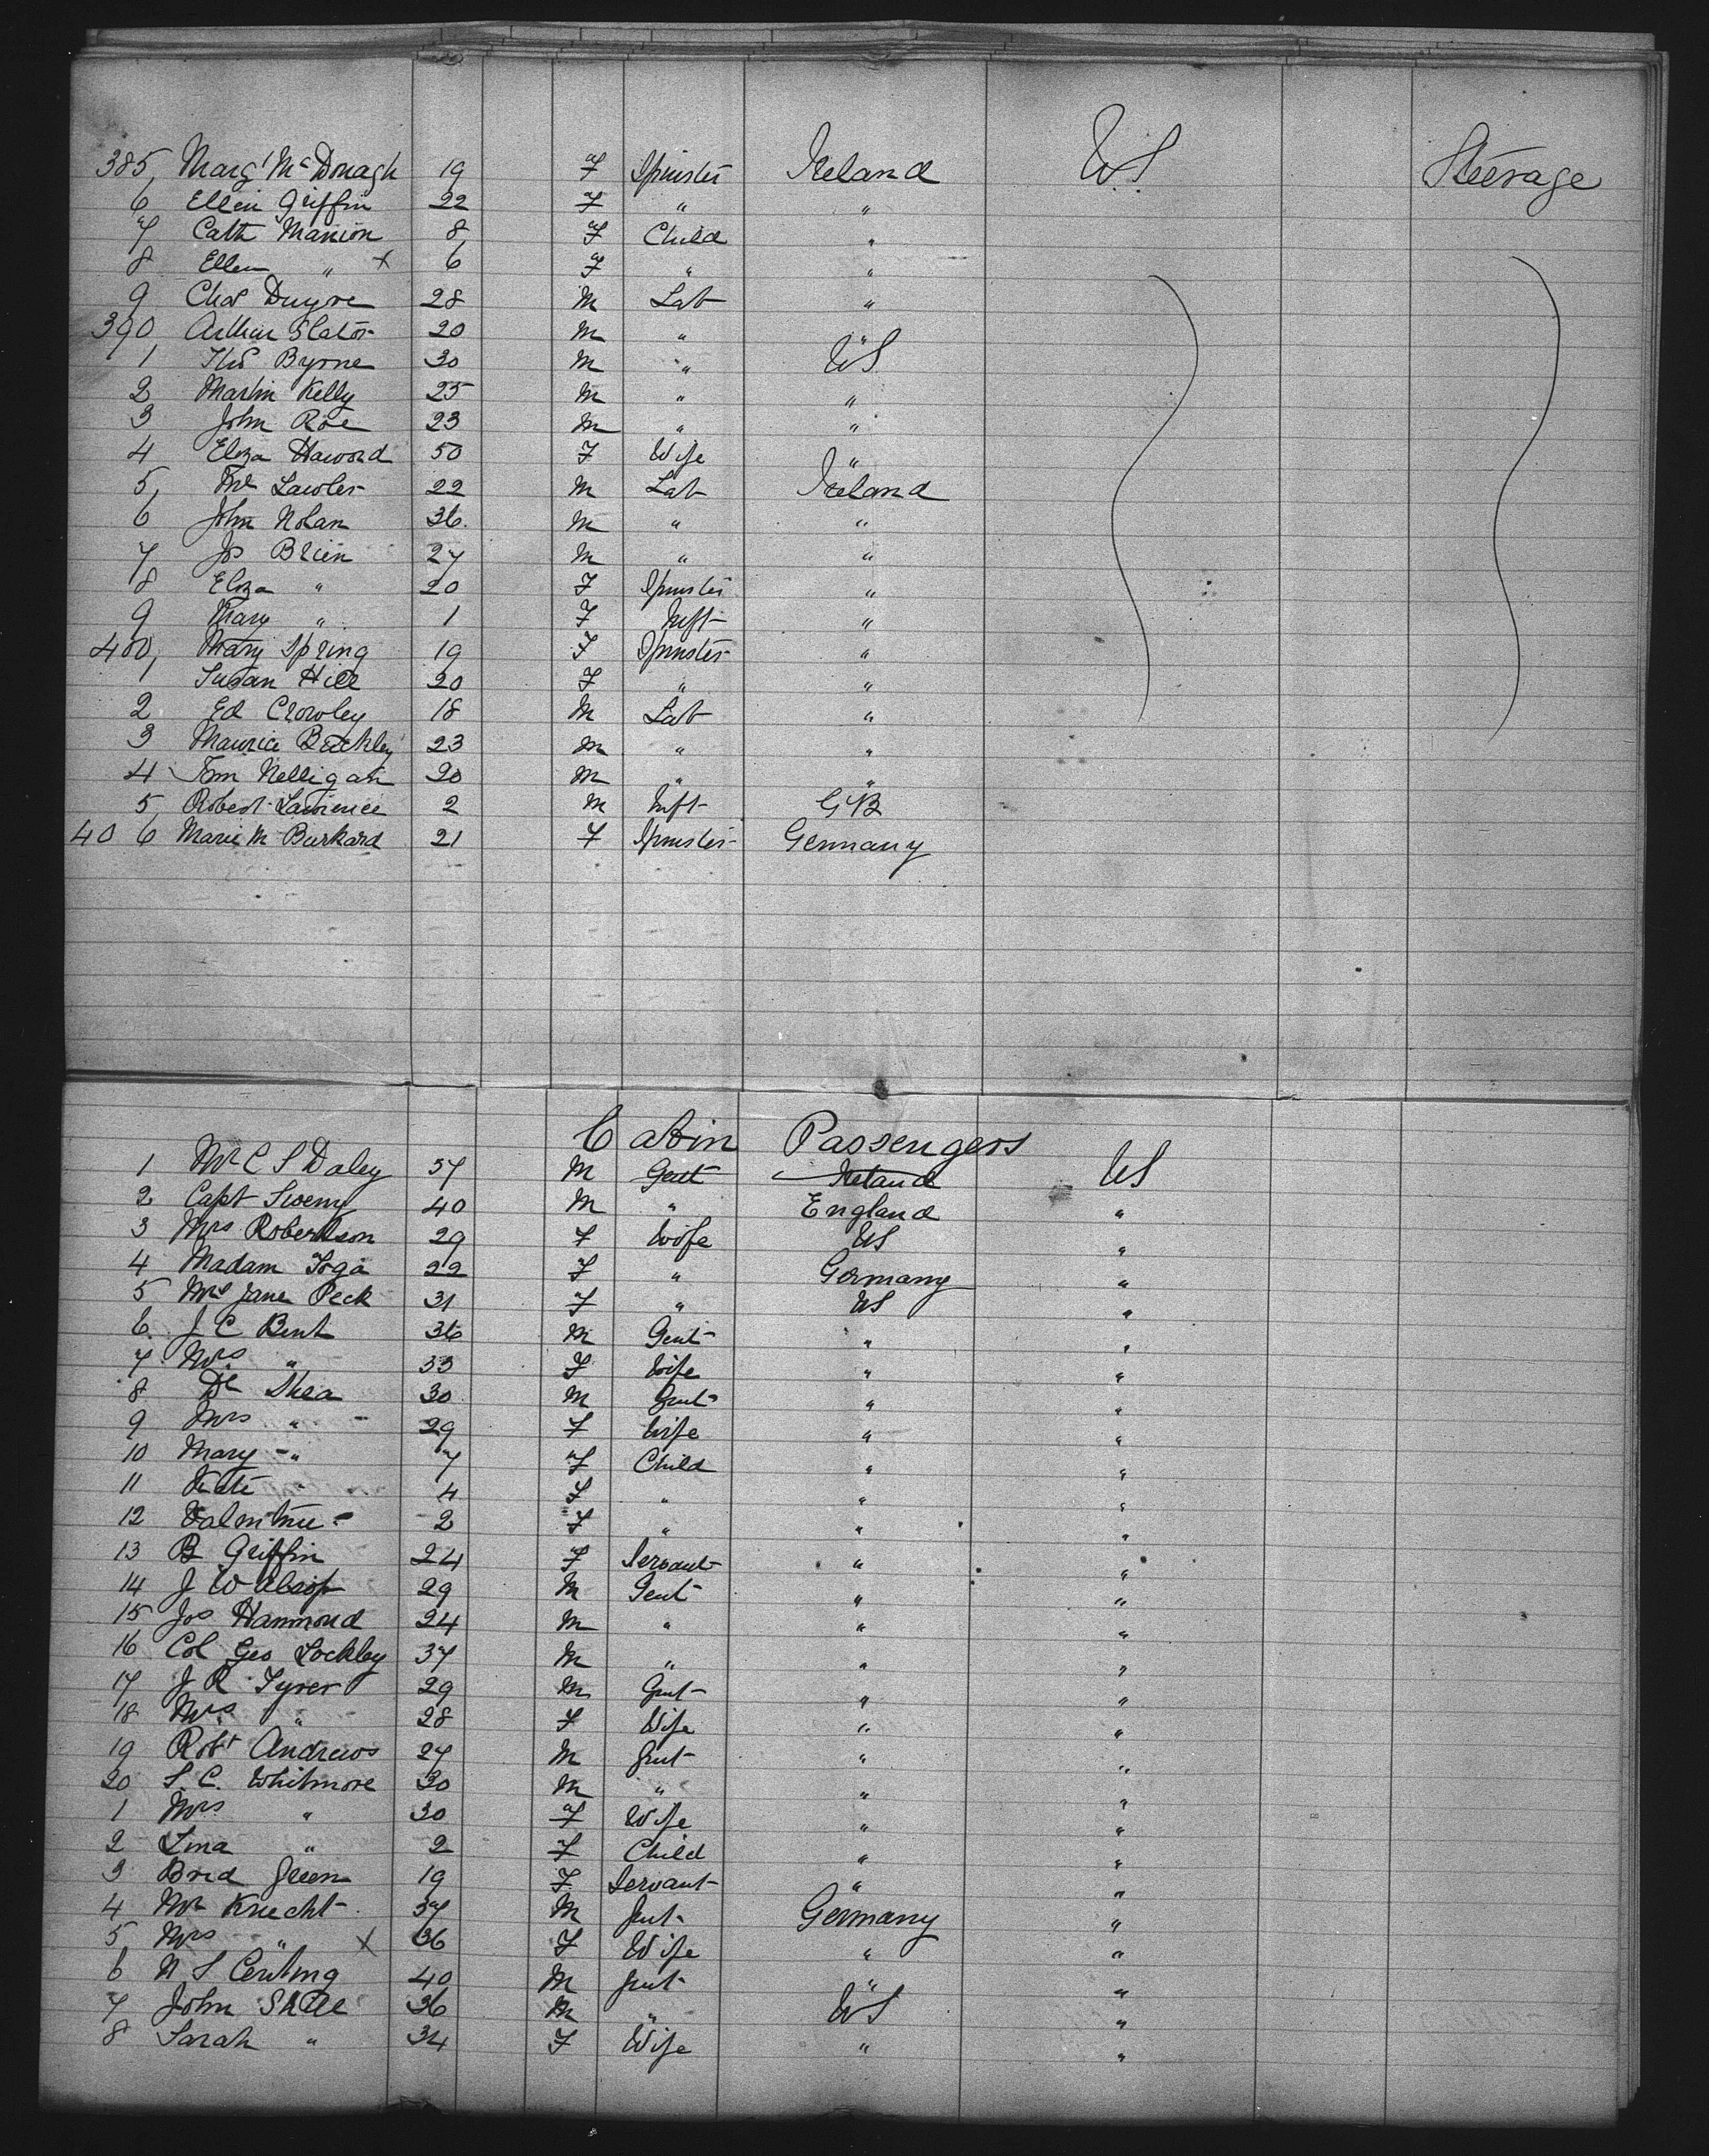 385, Margt McDonagh 19 F Spinster Ireland US Steerage
6 Ellen Griffin 22 F " "
7 Cath Manion 8 F Child "
8 Ellen " x 6 F " "
9 Chas 28 M Lab "
390, Arthur Slator 20 M " "
1 Thos Byrne 30 M " US
2 Martin Kelly 25 M " "
3 John Roe 23 M " "
4 Eliza Haword 50 F Wife "
5, Lawler 22 M Lab Ireland
6 John Nolan 36. M " "
7 Js Brien 27 M " "
8 Eliza " 20 F Spinster "
9 Mary " 1 F Inft "
400, Mary Spring 19 F Spinster "
1 Susan Hill 20 F " "
2 Ed Crowley 18 M Lab "
3 Maurice Buckley 23 M " "
4 Tom Nelligan 20 M " "
5, Robert Lawrence 2 M Inft GB
40 6 Marie M Burkard 21 F Spinster Germany
Cabin Passengers
1 Mr C S Daley 57 M Gent Ireland US
2 Capt Sweny 40 M " England "
3 Mrs Robertson 29 F Wife US "
4 Madam 22 F " Germany "
5 Mrs Jane Peck 31 F " US "
6. J C Bent 36 M Gent " "
7 Mrs " 33 F Wife " "
8 Dr Shea 30 M Gent " "
9 Mrs " 29 F Wife " "
10 Mary " 7 F Child " "
11 Kate " 4 F " " "
12 2 F " " "
13 B Griffin 24 F Servant " "
14 J W Alsop 29 M Gent " "
15 Jos Hammond 24 M " " "
16 Col Geo Lockley 37 M " " "
17 J R Tyrer 29 M Gent " "
18 Mrs " 28 F Wife " "
19 Robt Andrews 27 M Gent " "
20 S. C. Whitmore 30 M " " "
1 Mrs " 30 F Wife " "
2 Lina " 2 F Child " "
3 Brid Green 19 F Servant " "
4 Mr Knecht 37 M Gent Germany "
5 Mrs " x 36 F Wife " "
6 N S 40 M Gent " "
7 John 36 M " US "
8 Sarah " 34 F Wife " "